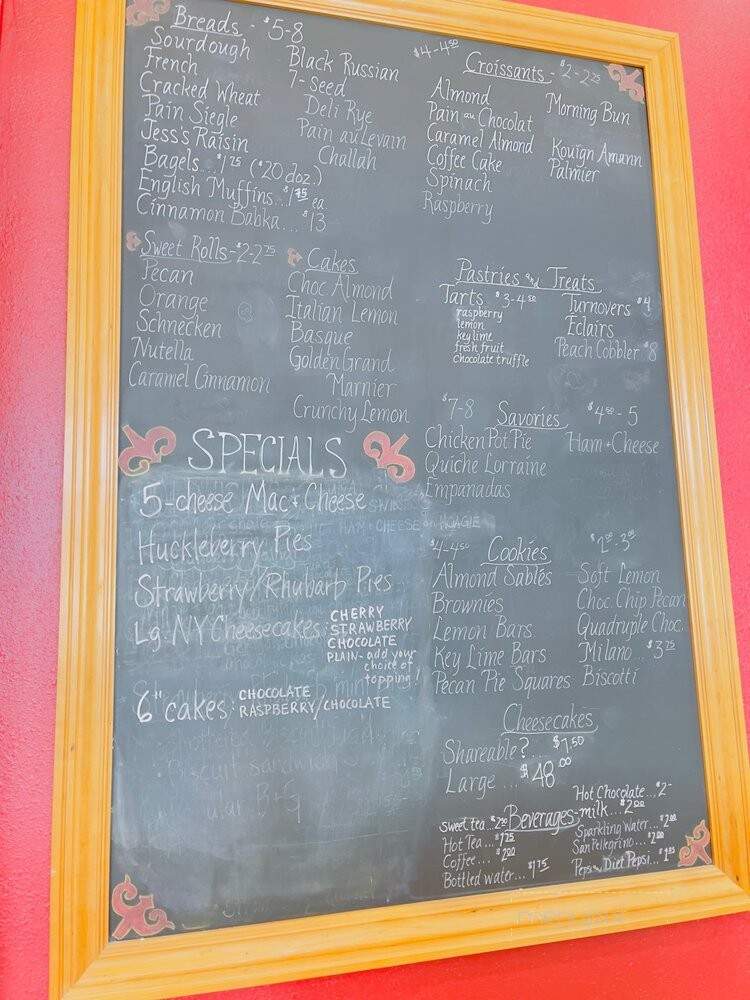 Breads - $5-8
Sourdough
French
Cracked Wheat
Pain Siegle
Jess's Raisin
Bagels... $1.25 ($20 doz.)
English Muffins... $1.75 ea
Cinnamon Babka... $13
Black Russian
7-Seed
Deli Rye
Pain au Levain
Challah
$4-4.50 Croissants - $2-2.25
Almond
Pain au Chocolat
Caramel Almond
Coffee Cake
Spinach
Raspberry
Morning Bun
Kouign Amann
Palmier
Sweet Rolls - $2-2.75
Pecan
Orange
Schnecken
Nutella
Caramel Cinnamon
Cakes
Choc Almond
Italian Lemon
Basque
Golden Grand
Marnier
Crunchy Lemon
Pastries and Treats
Tarts $3-4.50
raspberry
lemon
key lime
fresh fruit
chocolate truffle
Turnovers $4
Eclairs
Peach Cobbler $8
$7-8 Savories $4.50-5
Chicken Pot Pie
Quiche Lorraine
Empanadas
Ham + Cheese
SPECIALS
5-cheese Mac + Cheese
HAM + CHEESE on HOAGIE
Huckleberry Pies
Strawberry/Rhubarb Pies
Lg. NY Cheesecakes: CHERRY
STRAWBERRY
CHOCOLATE
PLAIN - add your
choice of
topping!
6" cakes: CHOCOLATE
RASPBERRY/CHOCOLATE
$4-4.50 Cookies
Almond Sablés
Brownies
Lemon Bars
Key Lime Bars
Pecan Pie Squares
Soft Lemon
Choc. Chip Pecan
Quadruple Choc.
Milano... $3.75
Biscotti
Cheesecakes
Shareable?... $7.50
Large... $48.00
Beverages
Sweet tea...
Hot Tea... $1.75
Coffee... $2.00
Bottled water... $1.75
Hot Chocolate... $2-
milk... $2.00
Sparkling Water... $2.00
San Pellegrino... $2.00
Pepsi Diet Pepsi...